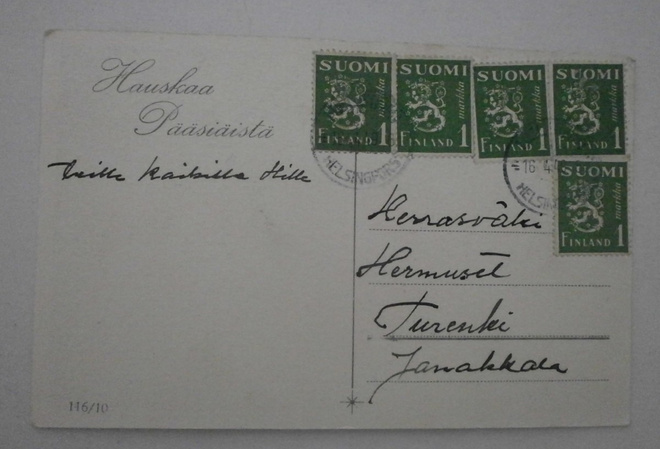 Hauskaa
Pääsiäistä
Teille kaikille Hilla
SUOMI
markka
FINLAND 1
SUOMI
markka
FINLAND 1
SUOMI
markka
FINLAND 1
SUOMI
markka
FINLAND 1
SUOMI
markka
FINLAND 1
HELSINGFORS
16 4
HELSIN
Herrasväki
Hermuset
Turenki
Janakkala
116/10